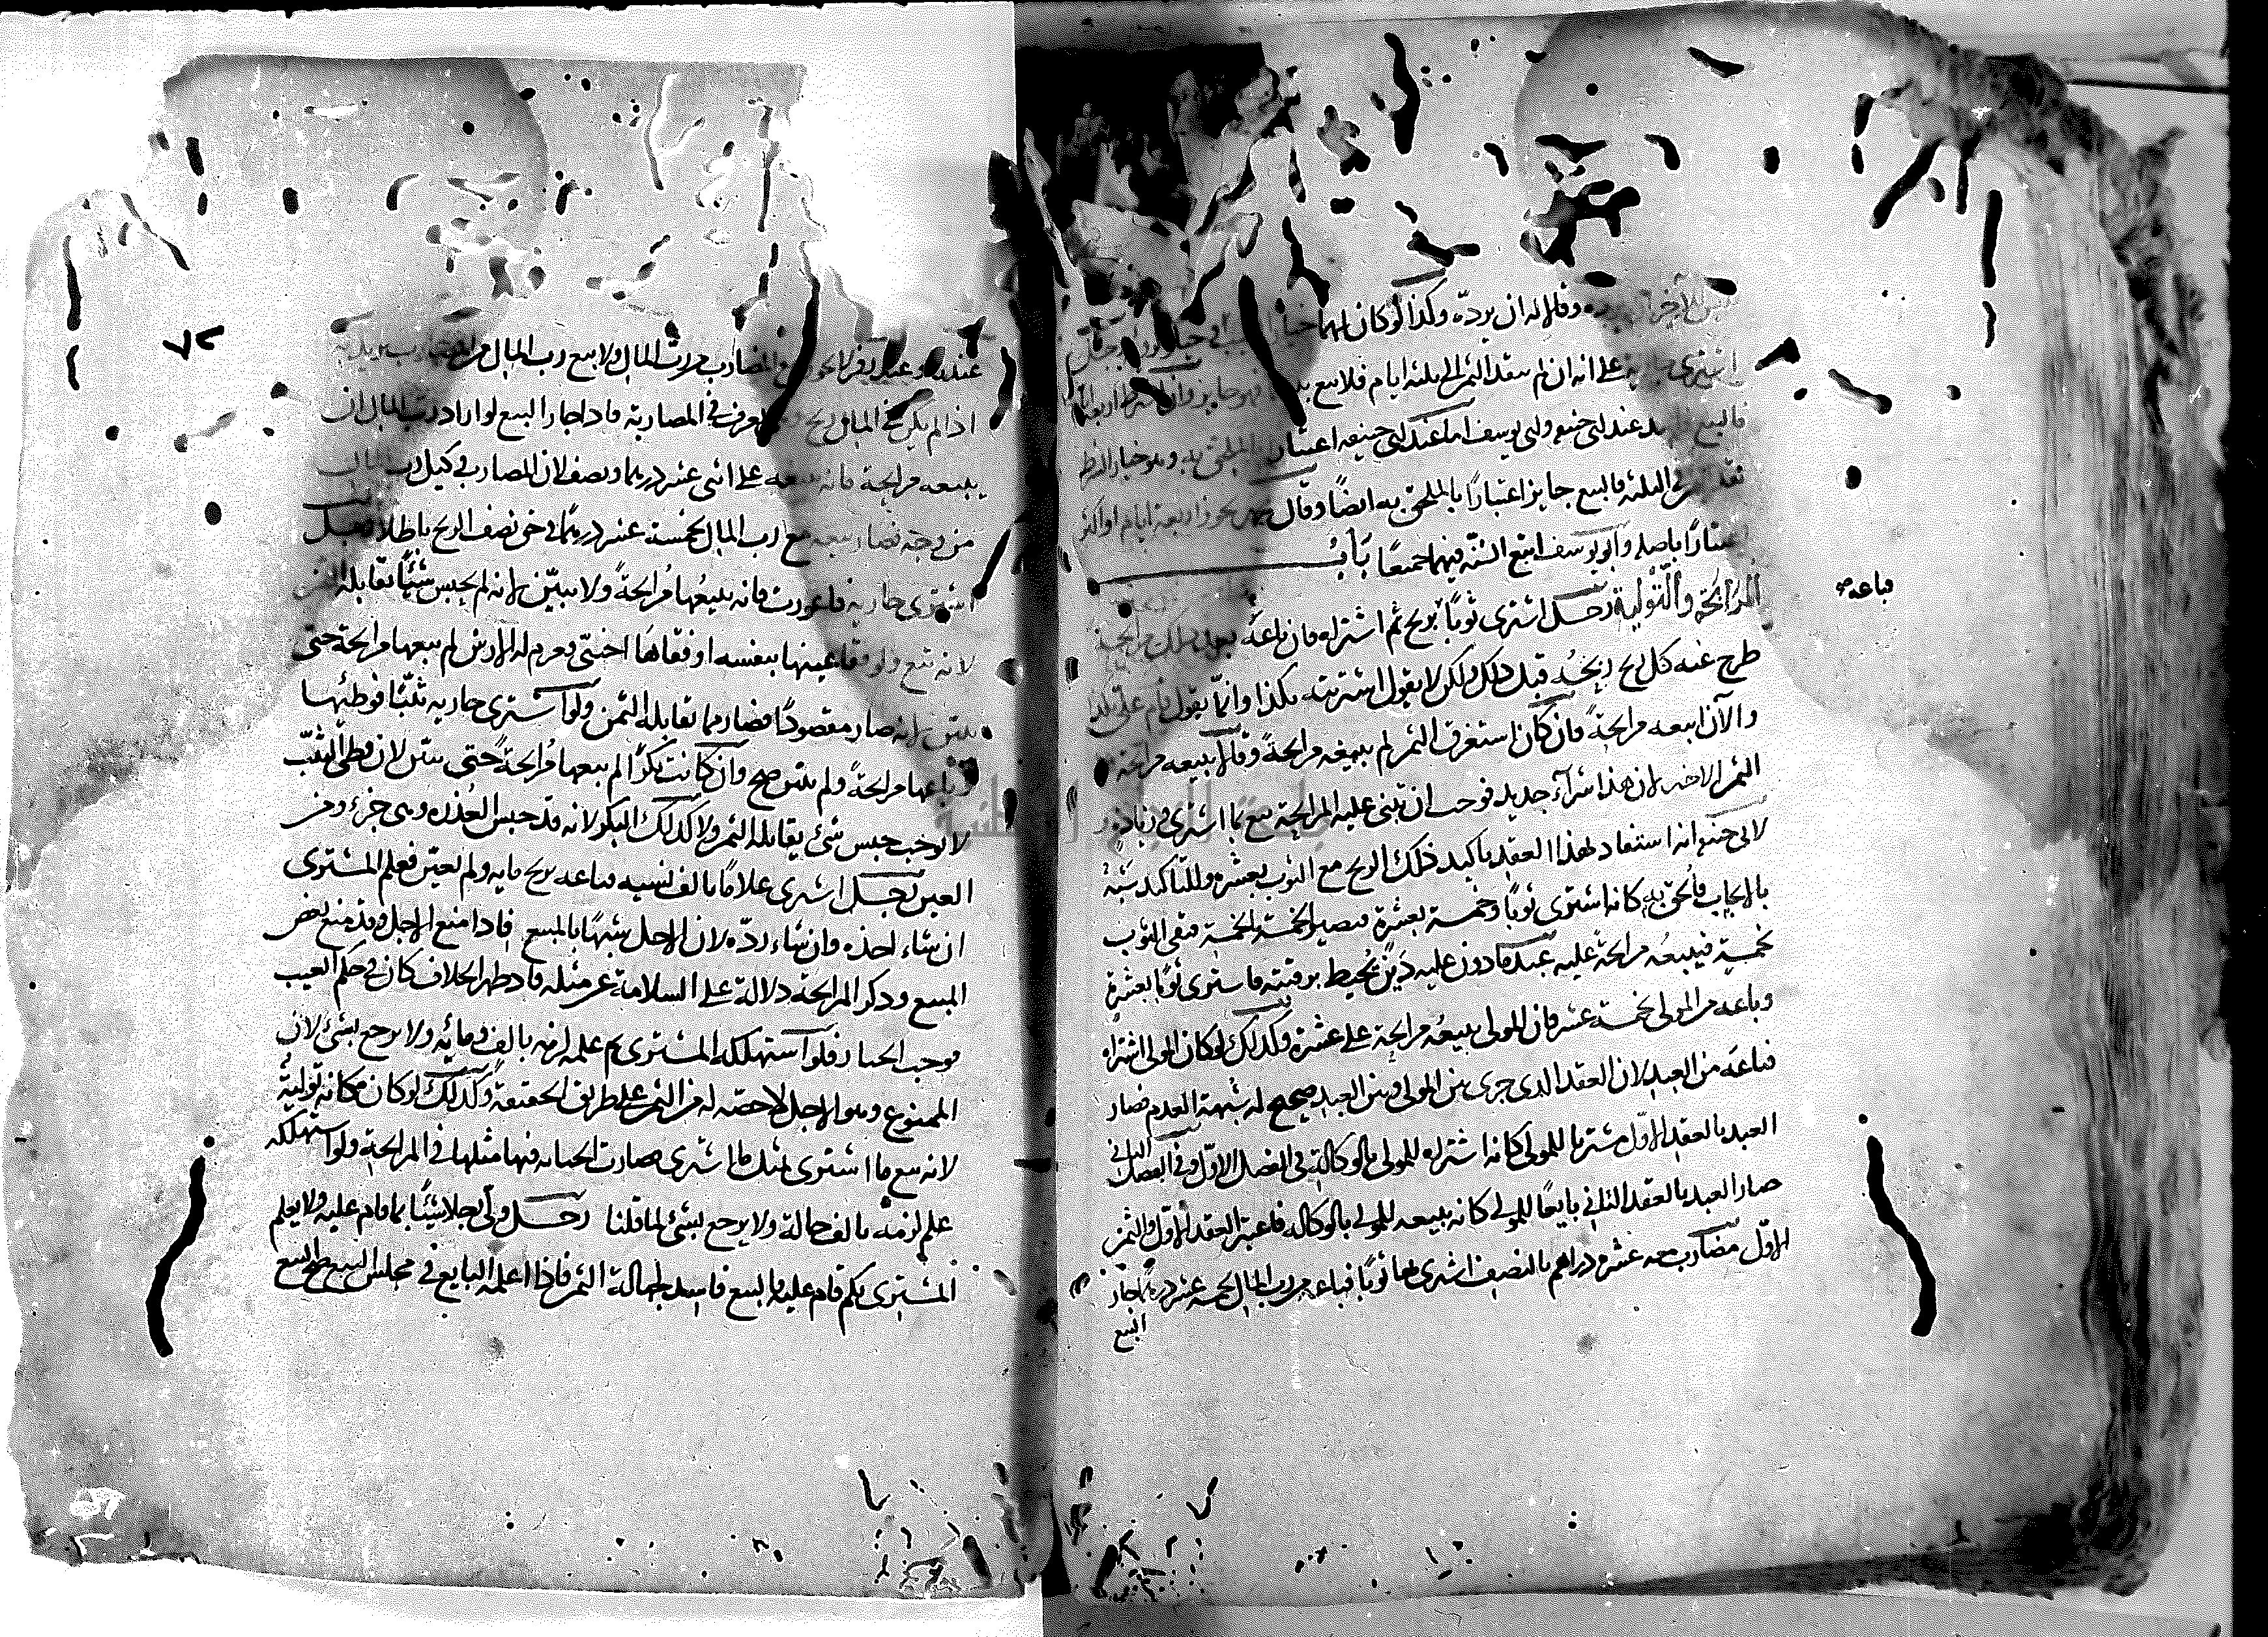 ليس للآخر ان يرده وقالا له ان يرده وكذا لو كان لهما خيار
اشترى على انه ان لم ينقد الثمن الى ثلثة ايام فلا بيع فهو جايز وان شرط اربعة
فالبيع فاسد عند ابي حنيفة وابي يوسف اما عند ابي حنيفة اعتبارا بالملحق به وهو خيار الشرط
نقد في الثلثة فالبيع جايز اعتبارًا بالملحق به ايضًا وقال محمد يجوز اربعة ايام او اكثر
اعتبارًا باصله وابو يوسف اتبع السنة فيهما جميعًا باب
المرابحة والتولية رجل اشترى ثوبًا بربح ثم اشتراه فان باعه بعد ذلك مرابحة
طرح عنه كل ربح ربحه قبل ذلك ولكن لا يقول اشتريته بكذا وانما يقول قام علي بكذا
والآن ابيعه مرابحة فان كان استغرق الثمن لم يبعه مرابحةً وقالا يبيعه مرابحة
الثمن الاخير لان هذا شرآء جديد فوجب ان تبنى عليه المرابحة بيع بما اشترى وزيادة و
لابي حنيفة انه استفاد بهذا العقد تاكيد ذلك الربح مع الثوب بعشرة وللتاكيد شبه
بالايجاب فالحق به كانه اشترى ثوبًا وخمسة بعشرة فيصير الخمسة بالخمسة فبقى الثوب
بخمسة فيبيعه مرابحة عليه عبد مأذون عليه دينٌ يحيط برقبته فاشترى ثوبًا بعشرة
وباعه من المولى بخمسة عشر فان المولى يبيعُه مرابحة على عشرة وكذلك لو كان المولى اشتراه
فباعه من العبد لان العقد الذي جرى بين المولى وبين العبد صحيح له شبهة العدم فصار
العبد بالعقد الاول مشتريا للمولى كانه اشتراه للمولى بالوكالة في الفصل الاوّل وفي الفصل الثاني
صار العبد بالعقد الثاني بايعًا للمولى كانه يبيعه للمولى بالوكاله فاعتبر العقد الاول والثمن
الاوّل مضارب معه عشرة دراهم بالنصف اشترى بها ثوبًا فباعه من رب المال بخمسة عشر درهمًا جاز
البيع
فباعه صح
عندنا وعند زفر لا يجوز بيع المضارب من رب المال ولا بيع رب المال من المضارب
اذا لم يكن في المال ربح في المضاربة فاذا جاز البيع لو اراد رب المال ان
يبيعه مرابحة فانه يبيعه على اثنى عشر درهما ونصف لان المضارب وكيل رب المال
من وجه فصار بيعه مع رب المال بخمسة عشر درهمًا في حق نصف الربح باطلا رجل
اشترى جارية فاعورت فانه يبيعُها مُرابحةً ولا يبيّن لانه لم يحبس شيئًا يقابله الثمن
لانه تبع ولو فقأ عينها بنفسه او فقأها اجنبي وغرم له الارش لم يبعها مرابحة حتى
يبين لانه صار مقصودًا فصار مما يقابله الثمن ولو اشترى جارية ثيّبًا فوطئها
وباعها مرابحةً ولم يبين صح وان كانت بكرًا لم يبعها مُرابحةً حتى يبين لان وطئ الثيّب
لا يوجب حبس شئ يقابله الثمن ولا كذلك البكر لانه قد حبس العُذره وهي جزء من
العين رجل اشترى غلامًا بالف نسيه فباعه بربح مايه ولم يعين فعلم المشترى
ان شاء اخذه وان شاء ردّه لان الاجل شبهًا بالمبيع فاذا منع الاجل وقد منع بعض
المبيع وذكر المرابحة دلالة على السلامة عن مثله فاذا ظهر الخلاف كان في حكم العيب
فوجب الخيار فلو استهلكه المشترى ثم علم لزمه بالف ومايه ولا يرجع بشئ لان
الممنوع وهو الاجل لا حصه له من الثمن على طريق الحقيقة وكذلك لو كان مكانه تولية
لانه بيع ما اشترى بمثل ما اشترى فصارت الخيانه فيها مثلها في المرابحة ولو استهلكه
علم لزمته بالف حالة ولا يرجع بشئ لما قلنا رجل ولّى رجلا شيئًا بما قام عليه ولا يعلم
المشترى بكم قام عليه فالبيع فاسد لجهالة الثمن فاذا اعلمه البايع في مجلس البيع صح البيع